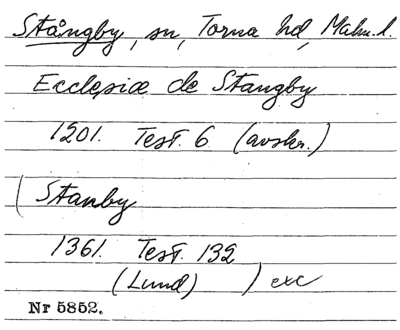 Stångby, sn, Torna hd, Malm. l.
Ecclesiæ de Stangby
1201. Test. 6 (avskr.)
(Stanby
1361. Test. 132
(Lund) ) exc
Nr 5852.